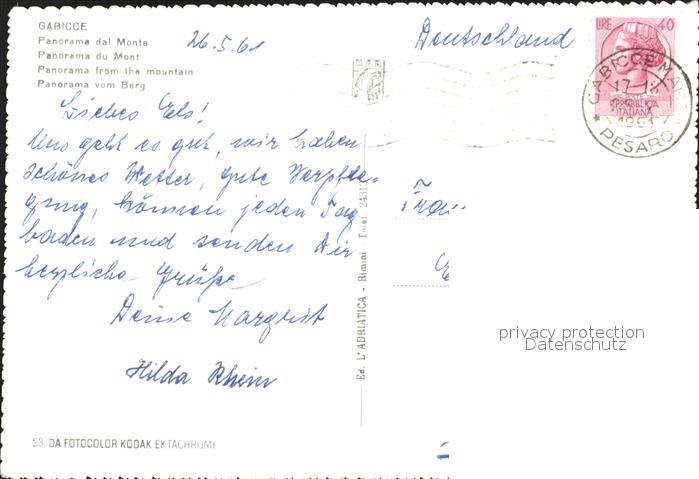 GABICCE
Panorama dal Monte
Panorama du Mont
Panorama from the mountain
Panorama vom Berg
26.5.61
Deutschland
LIRE 40
POSTE
REPUBBLICA
ITALIANA
GABICCE MARE
17-18
1961
* PESARO
Liebes Els!
Uns geht es gut, wir haben
schönes Wetter, gute Verpfle-
gung, können jeden Tag
baden und senden Dir
herzliche Grüße
Deine Margrit
Hilda Rhein
Frau
Ed. L'ADRIATICA - Rimini Telef.
privacy protection
Datenschutz
23 DA FOTOCOLOR KODAK EKTACHROME